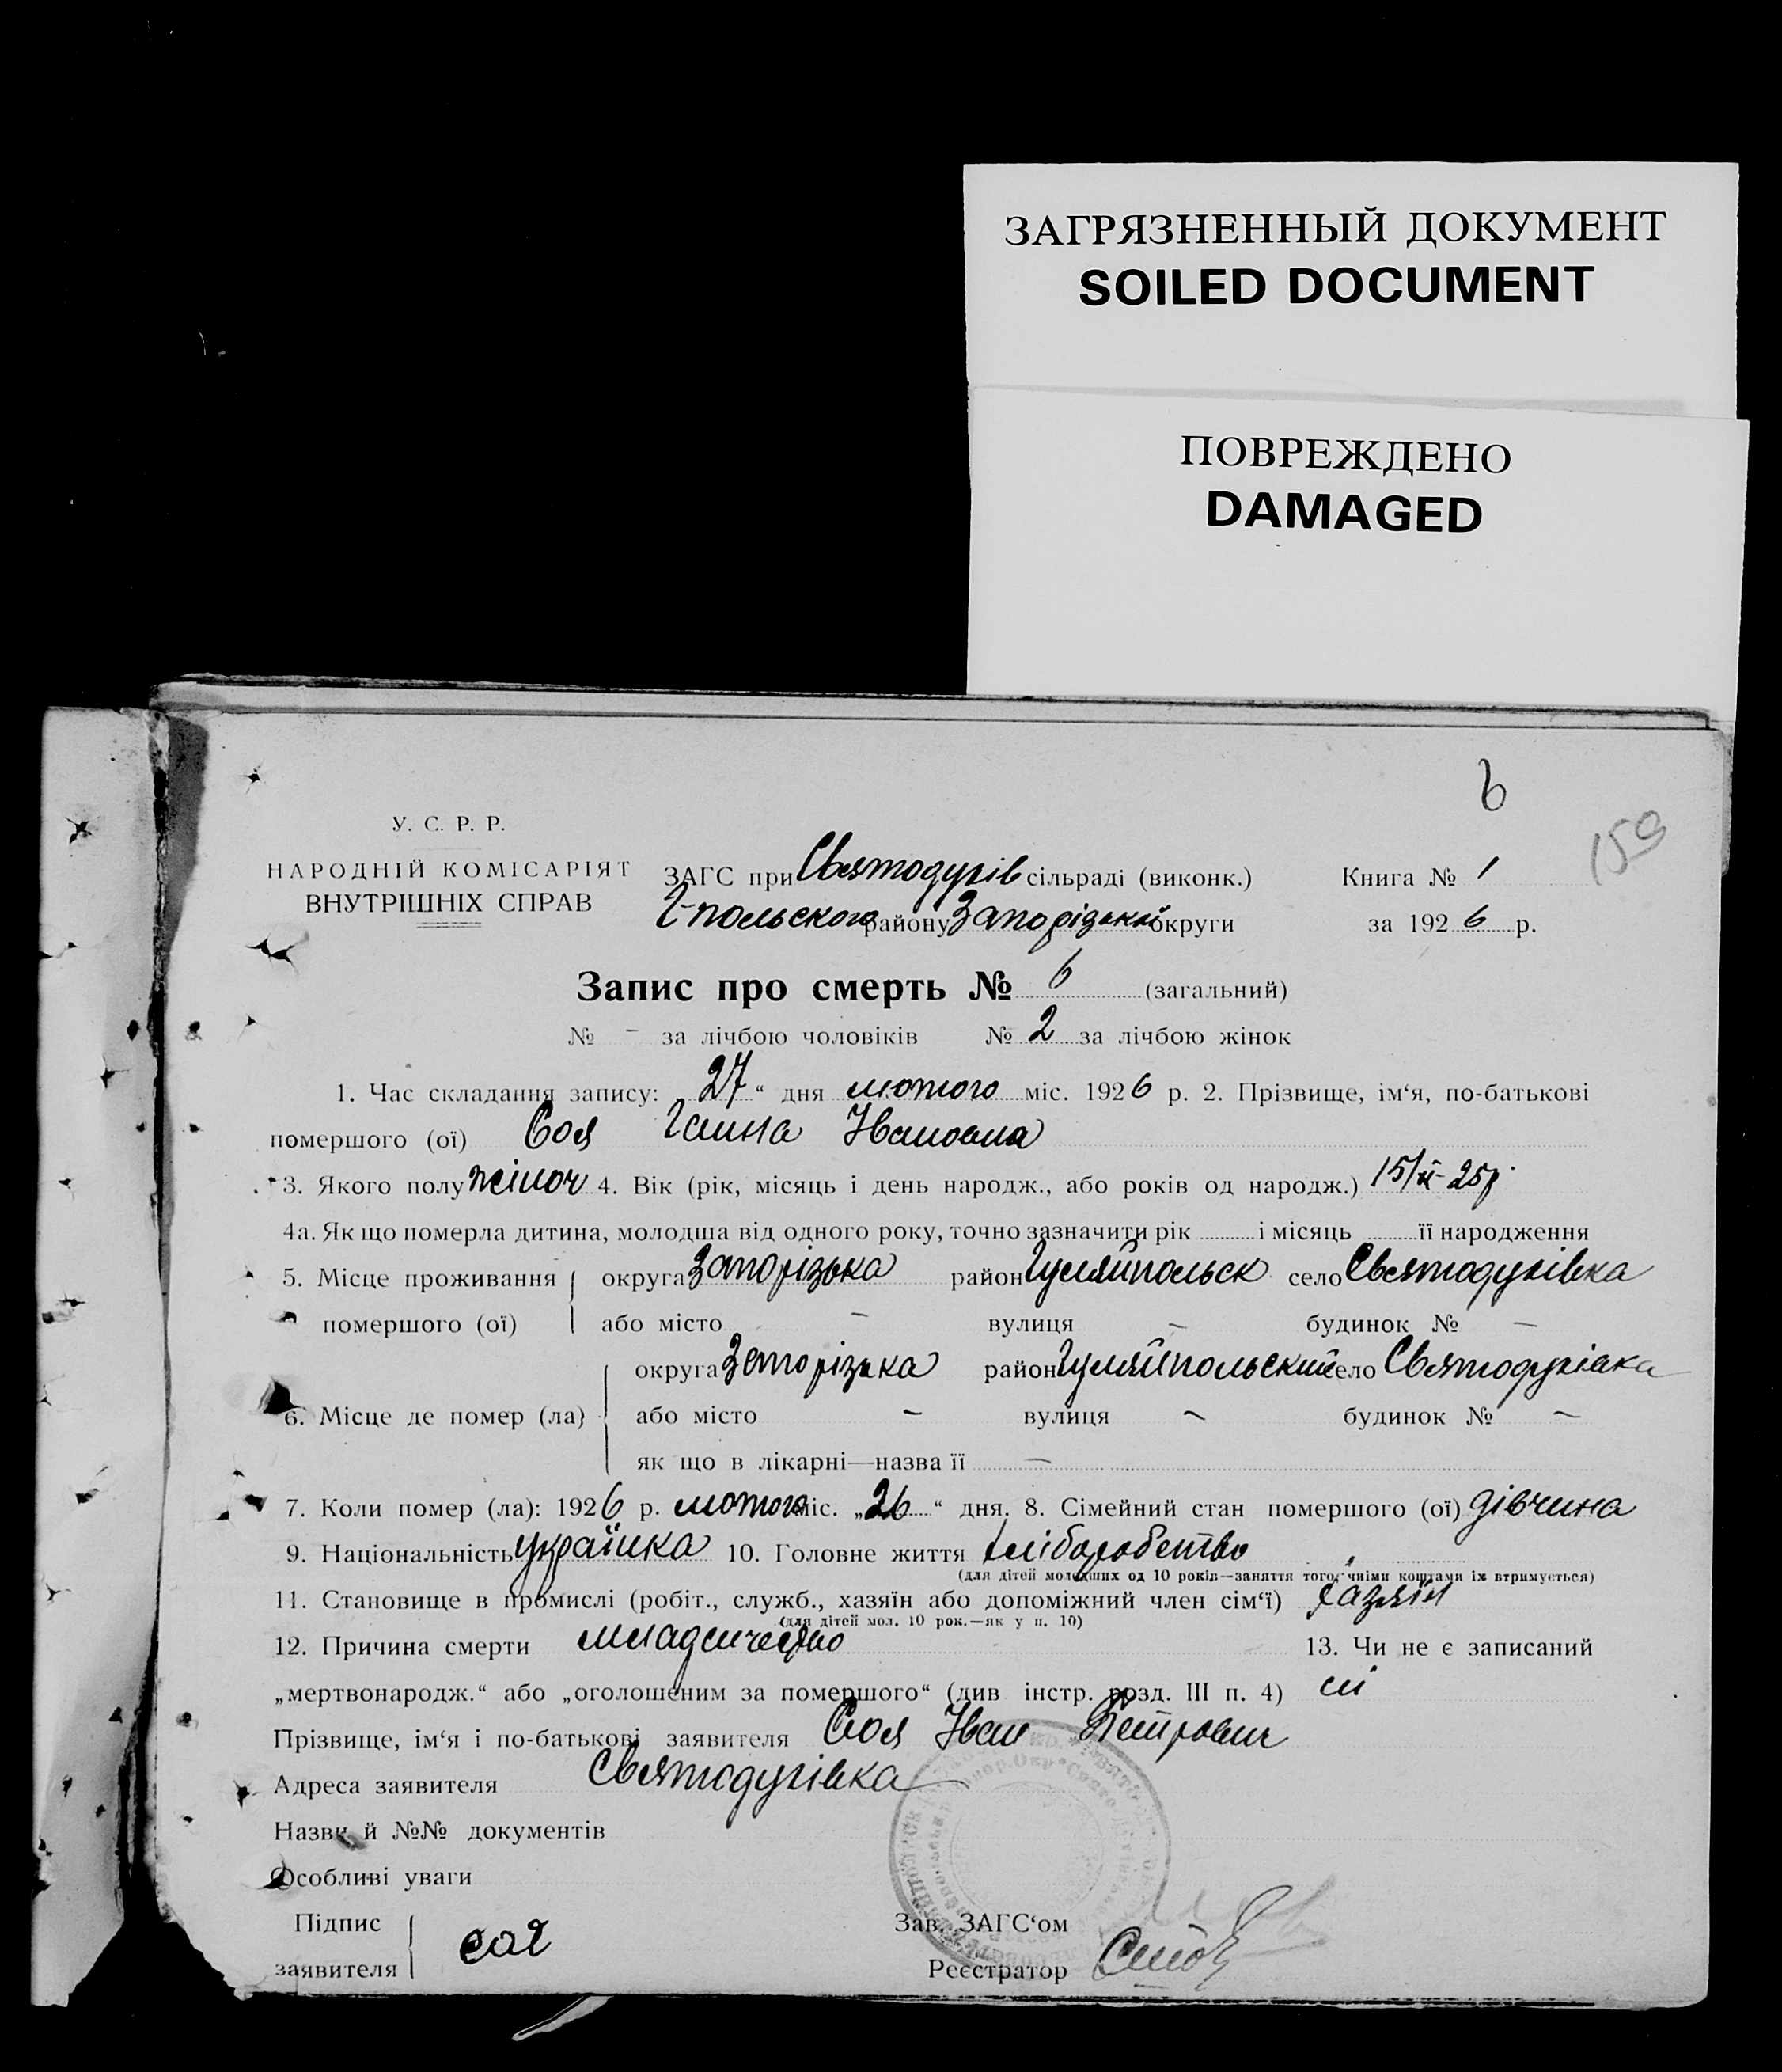 ЗАГРЯЗНЕННЫЙ ДОКУМЕНТ
SOILED DOCUMENT
ПОВРЕЖДЕНО
DAMAGED
6
159
У. С. Р. Р.
НАРОДНІЙ КОМІСАРІЯТ
ВНУТРІШНІХ СПРАВ
ЗАГС при Святодухів сільраді (виконк.) Книга № 1
Г-польского району Запорізької округи за 1926 р.
Запис про смерть № 6 (загальний)
№ - за лічбою чоловіків № 2 за лічбою жінок
1. Час складання запису: 27 “ дня лютого міс. 1926 р. 2. Прізвище, ім‘я, по-батькові
помершого (ої) Соя Ганна Івановна
3. Якого полу жіноч 4. Вік (рік, місяць і день народж., або років од народж.) 15/ІІ-25р.
4а. Як що померла дитина, молодша від одного року, точно зазначити рік і місяць її народження
5. Місце проживання округа Запорізька район Гуляйпольск село Святодухівка
помершого (ої) або місто - вулиця - будинок № -
округа Запорізька район Гуляйпольский село Святодухівка
6. Місце де помер (ла) або місто - вулиця - будинок № -
як що в лікарні—назва її -
7. Коли помер (ла): 1926 р. лютого міс. „26“ дня. 8. Сімейний стан помершого (ої) дівчина
9. Національність українка 10. Головне життя хліборобство
(для дітей молодших од 10 років—заняття того, чиїми коштами їх втримується)
11. Становище в промислі (робіт., служб., хазяїн або допоміжний член сім‘ї) хазяїн
(для дітей мол. 10 рок.—як у п. 10)
12. Причина смерти младенчество 13. Чи не є записаний
„мертвонародж.“ або „оголошеним за помершого“ (див інстр. розд. III п. 4) ні
Прізвище, ім‘я і по-батькові заявителя Соя Іван Петрович
Адреса заявителя Святодухівка
Назви й №№ документів
Особливі уваги
Підпис Зав. ЗАГС‘ом
заявителя соя Реєстратор